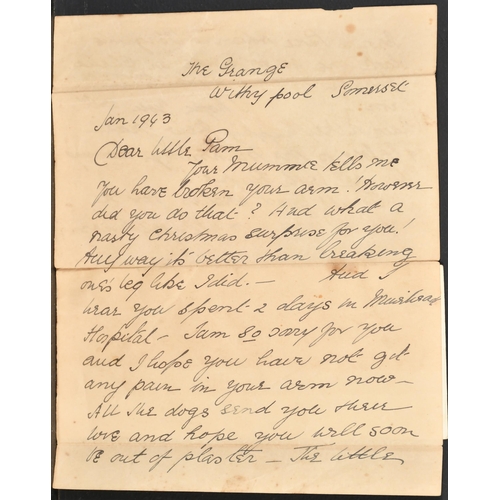 The Grange
Withypool Somerset
Jan 1943
Dear Little Pam
Your Mummie tells me
you have broken your arm! However
did you do that? And what a
nasty Christmas surprise for you!
Any way it's better than breaking
one's leg like I did. — And I
hear you spent 2 days in Muirhead
Hospital — I am so sorry for you
and I hope you have not got
any pain in your arm now —
All the dogs send you their
love and hope you will soon
be out of plaster — The little